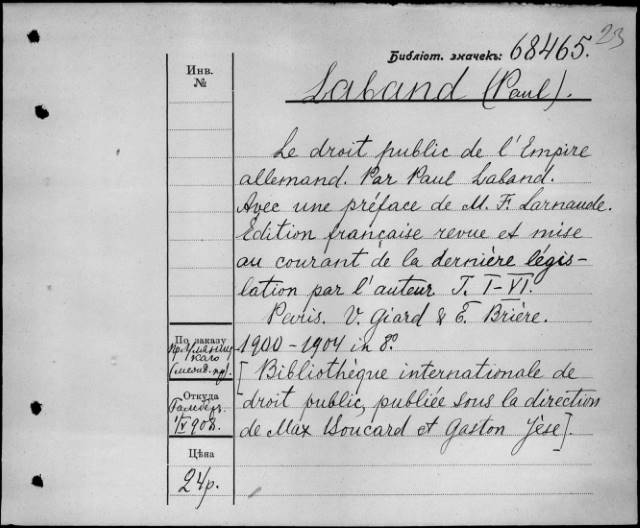 23
Библіот. значекъ: 68465.
Инв.
№
Laband (Paul).
Le droit public de l'Empire
allemand. Par Paul Laband.
Avec une préface de M. F. Larnaude.
Edition française revue et mise
au courant de la dernière légis-
lation par l'auteur T. I-VI.
Paris. V. Giard & E. Brière.
1900-1904 in 8º
[Bibliothèque internationale de
droit public, publiée sous la direction
de Max Boucard et Gaston Jèse].
По заказу
Откуда
1908.
Цѣна
24 р.